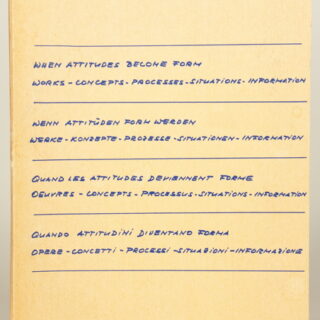 WHEN ATTITUDES BECOME FORM
WORKS - CONCEPTS - PROCESSES - SITUATIONS - INFORMATION
WENN ATTITÜDEN FORM WERDEN
WERKE - KONZEPTE - PROZESSE - SITUATIONEN - INFORMATION
QUAND LES ATTITUDES DEVIENNENT FORME
OEUVRES - CONCEPTS - PROCESSUS - SITUATIONS - INFORMATION
QUANDO ATTITUDINI DIVENTANO FORMA
OPERE - CONCETTI - PROCESSI - SITUAZIONI - INFORMAZIONE